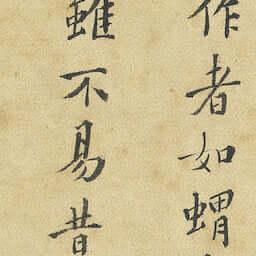 作者如蝟
雖不易昔